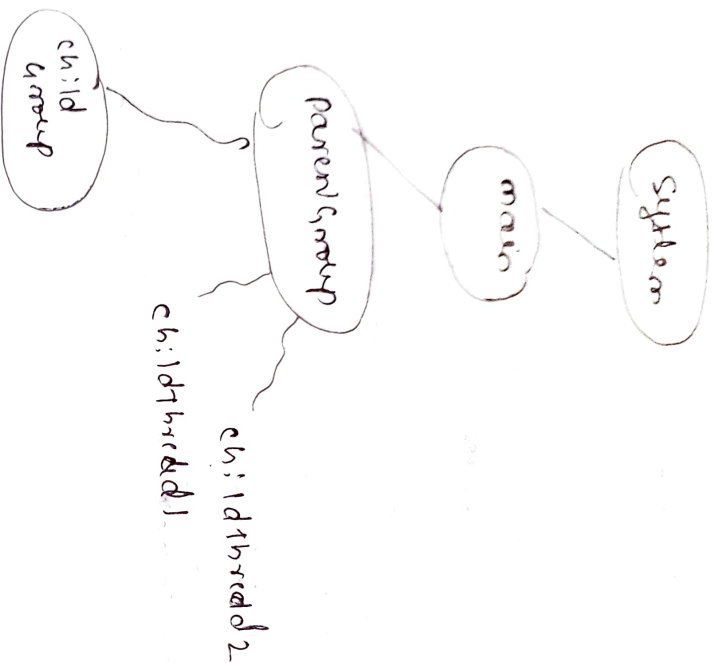 System
main
ParentGroup
child
Group
childthread1
childthread2